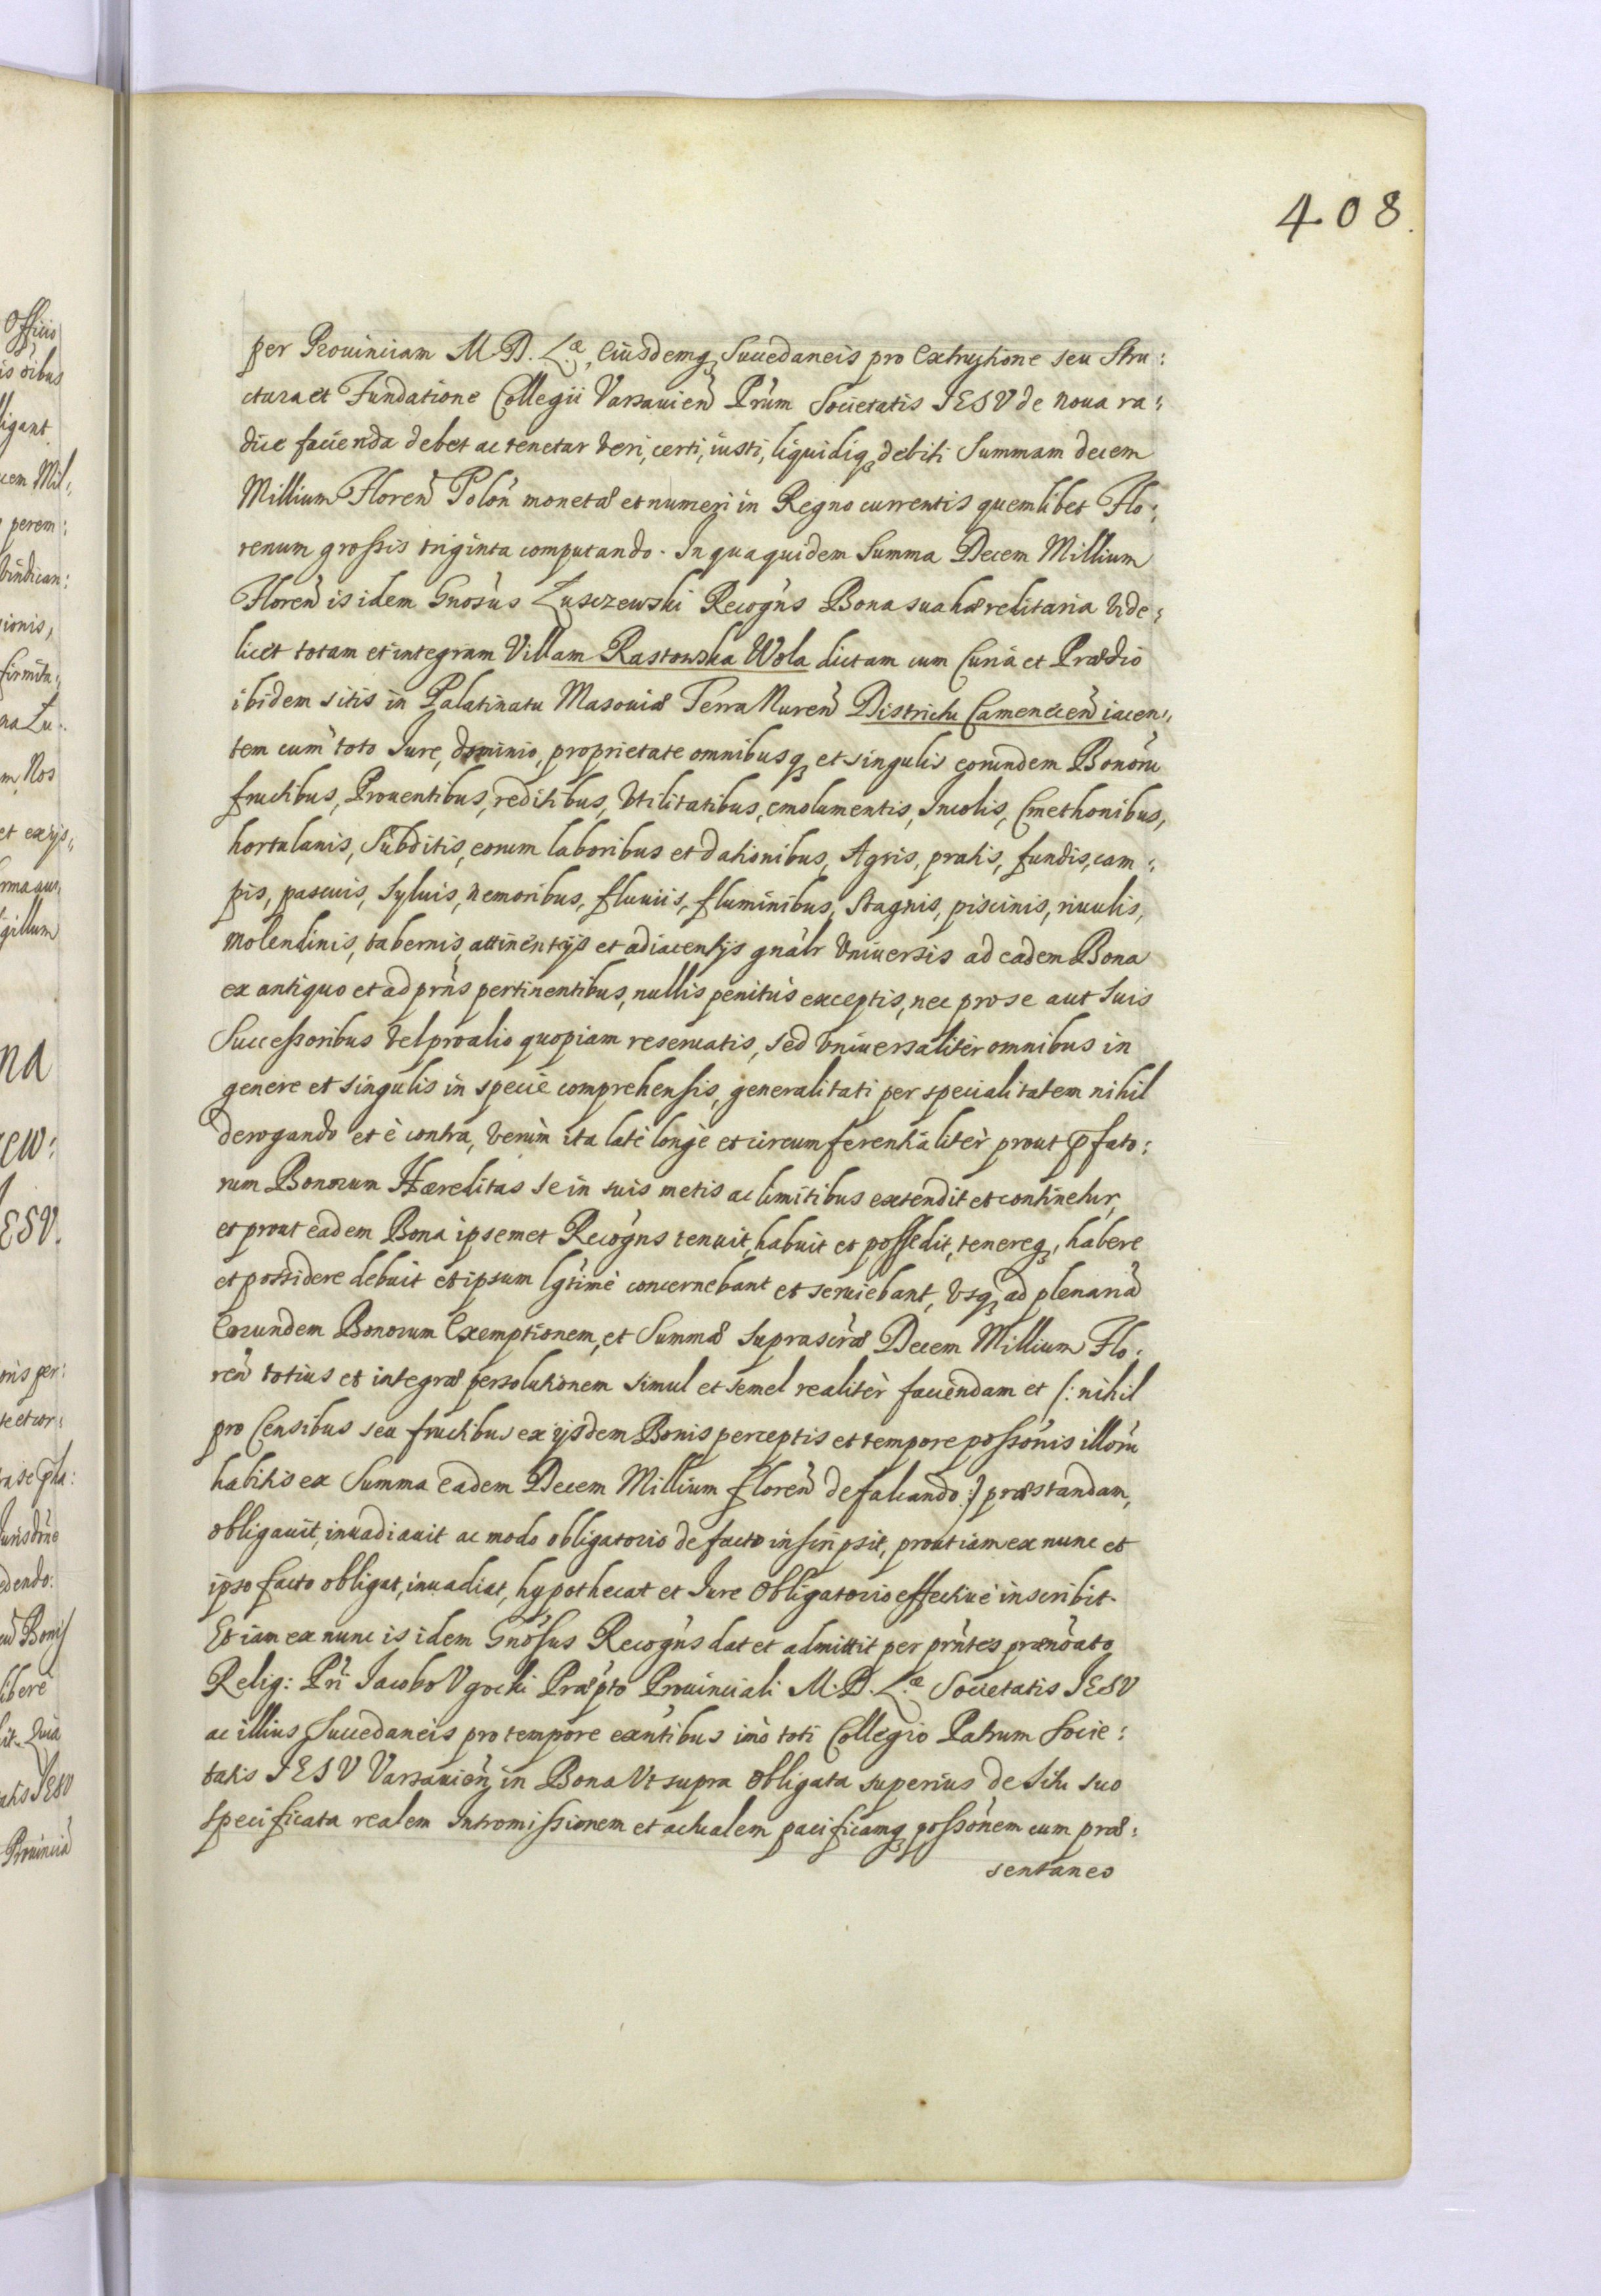 408.
per Prouinciam M. D. L.æ, Eiusdemq₃ Succedaneis pro Extructione seu Stru:
ctura et Fundatione Collegii Varsauien̄ Prum̄ Societatis IESV de noua ra:
dice facienda debet ac tenetur veri, certi, iusti, liquidiq₃ debiti Summam decem
Millium Floren̄ Polon̄ monetæ et numeri in Regno currentis quemlibet Flo:
renum grossis triginta computando. In qua quidem Summa Decem Millium
Floren̄ is idem Gnosus Zusczewski Recogns Bona sua hæreditaria vide:
licet totam et integram Villam Rastowska Wola dictam cum Curia et Prædio
ibidem sitis in Palatinatu Masouiæ Terra Nuren̄ Districtu Camenecen̄ iacen:
tem cum toto Iure, dominio, proprietate omnibusq₃ et singulis eorundem Bonorū
fructibus, Prouentibus, reditibus, vtilitatibus, emolumentis, Incolis, Cmethonibus,
hortulanis, Subditis, eorum laboribus et dationibus, Agris, pratis, fundis, cam:
pis, pascuis, Syluis, nemoribus, fluuiis, fluminibus, Stagnis, piscinis, riuulis,
molendinis, tabernis, attinentijs et adiacentijs gnalr Vniuersis ad eadem Bona
ex antiquo et ad prns pertinentibus, nullis penitùs exceptis, nec pro se aut suis
Successoribus vel pro alio quopiam reseruatis, sed vniuersalitèr omnibus in
genere et singulis in specie comprehensis, generalitati per specialitatem nihil
derogando et è contra, verùm ita latè longè et circumferentialitèr prout p̄fato:
rum Bonorum Hæreditas se in suis metis ac limitibus extendit et continetur,
et prout eadem Bona ipsemet Recogns tenuit, habuit et possedit, tenereq₃, habere
et possidere debuit et ipsum lgtimè concernebant et seruiebant, vsq₃ ad plenariā
Eorundem Bonorum Exemptionem, et Summæ suprascræ Decem Millium Flo:
ren̄ totius et integræ persolutionem simul et semel realitèr faciendam et (: nihil
pro Censibus seu fructibus ex ijsdem Bonis perceptis et tempore possonis illorū
habitis ex Summa eadem Decem Millium floren̄ defalcando :) præstandam,
obligauit, inuadiauit ac modo obligatorio de facto inscripsit, prout iam ex nunc et
ipso facto obligat, inuadiat, hypothecat et Iure Obligatorio effectiuè inscribit.
Et iam ex nunc is idem Gnosus Recogns dat et admittit per prntes prænoato
Relig: Pri Iacobo Vgocki Præpto Prouinciali M. D. L.æ Societatis IESV
ac illius Succedaneis pro tempore exntibus imò toti Collegio Patrum Socie:
tatis IESV Varsauien̄ in Bona vt supra Obligata superius de situ suo
specificata realem Intromissionem et actualem pacificamq₃ possonem cum præ:
sentaneo